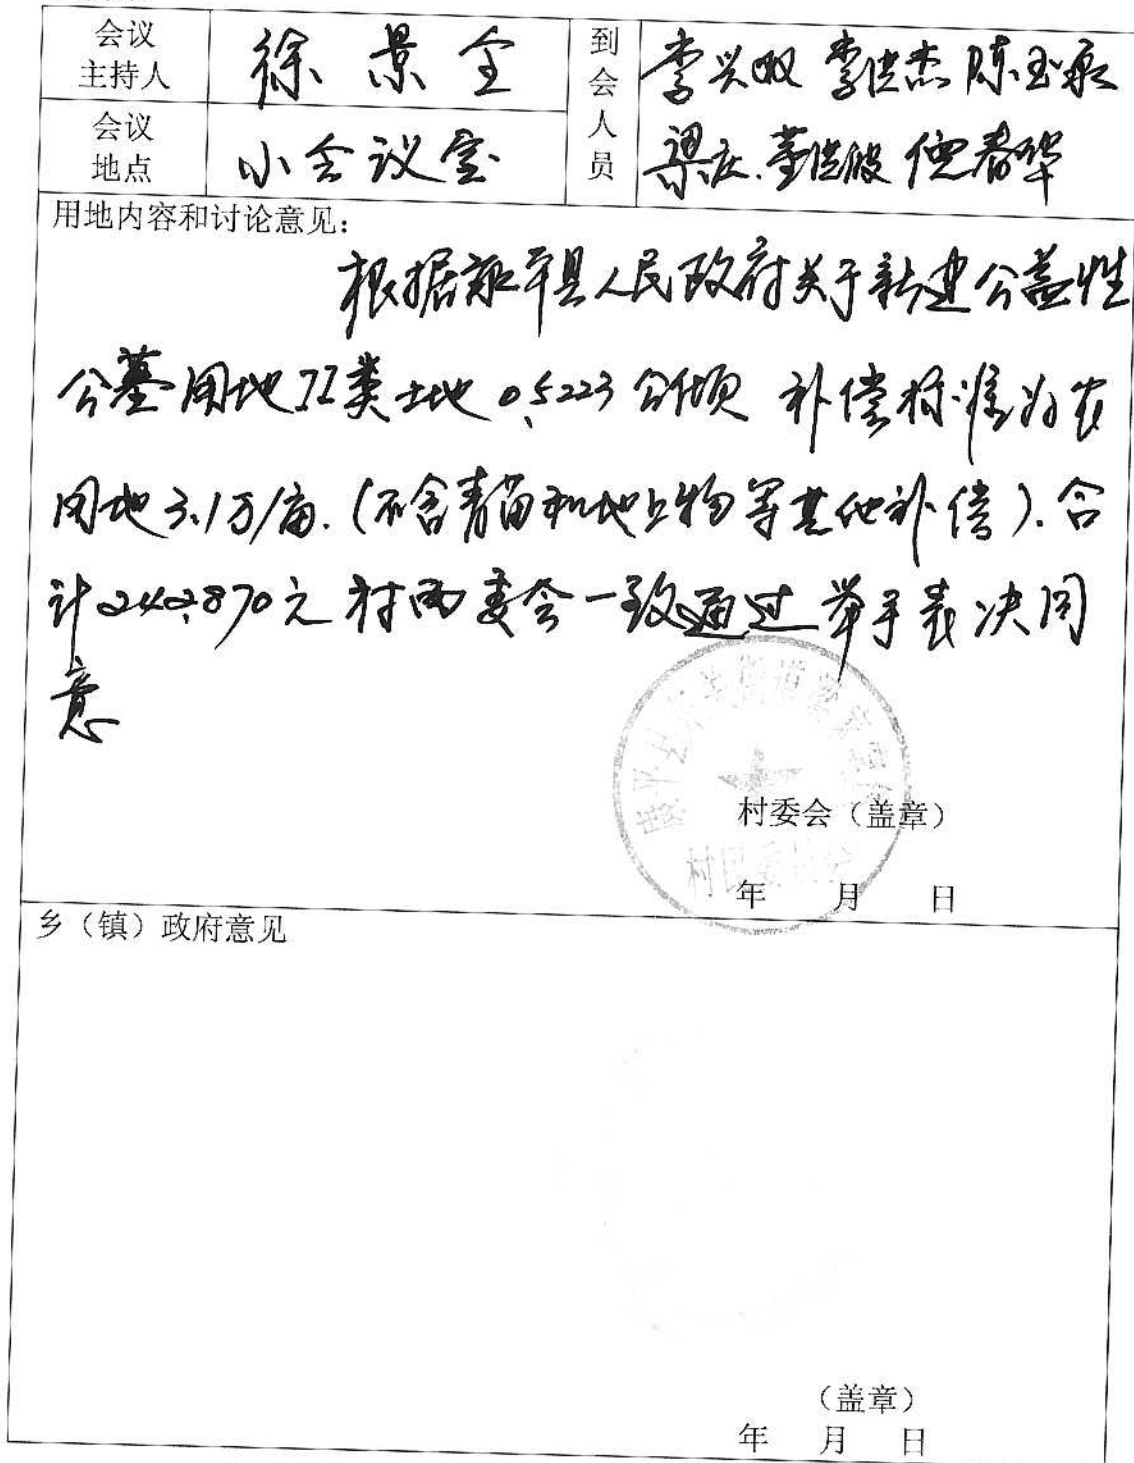 会议
主持人
徐景全
到会人员
李兴双 李洪杰 陈玉永
会议
地点
小会议室
梁庆.董洪波 倪春华
用地内容和讨论意见：
根据 平县人民政府关于新建公益性
公墓用地 II类土地 0.5223公顷 补偿标准为农
用地3.1万/亩.(不含青苗和地上物等其他补偿).合
计242870元 村两委会一致通过 举手表决同
意
村委会（盖章）
村民委员会
年 月 日
乡（镇）政府意见
（盖章）
年 月 日